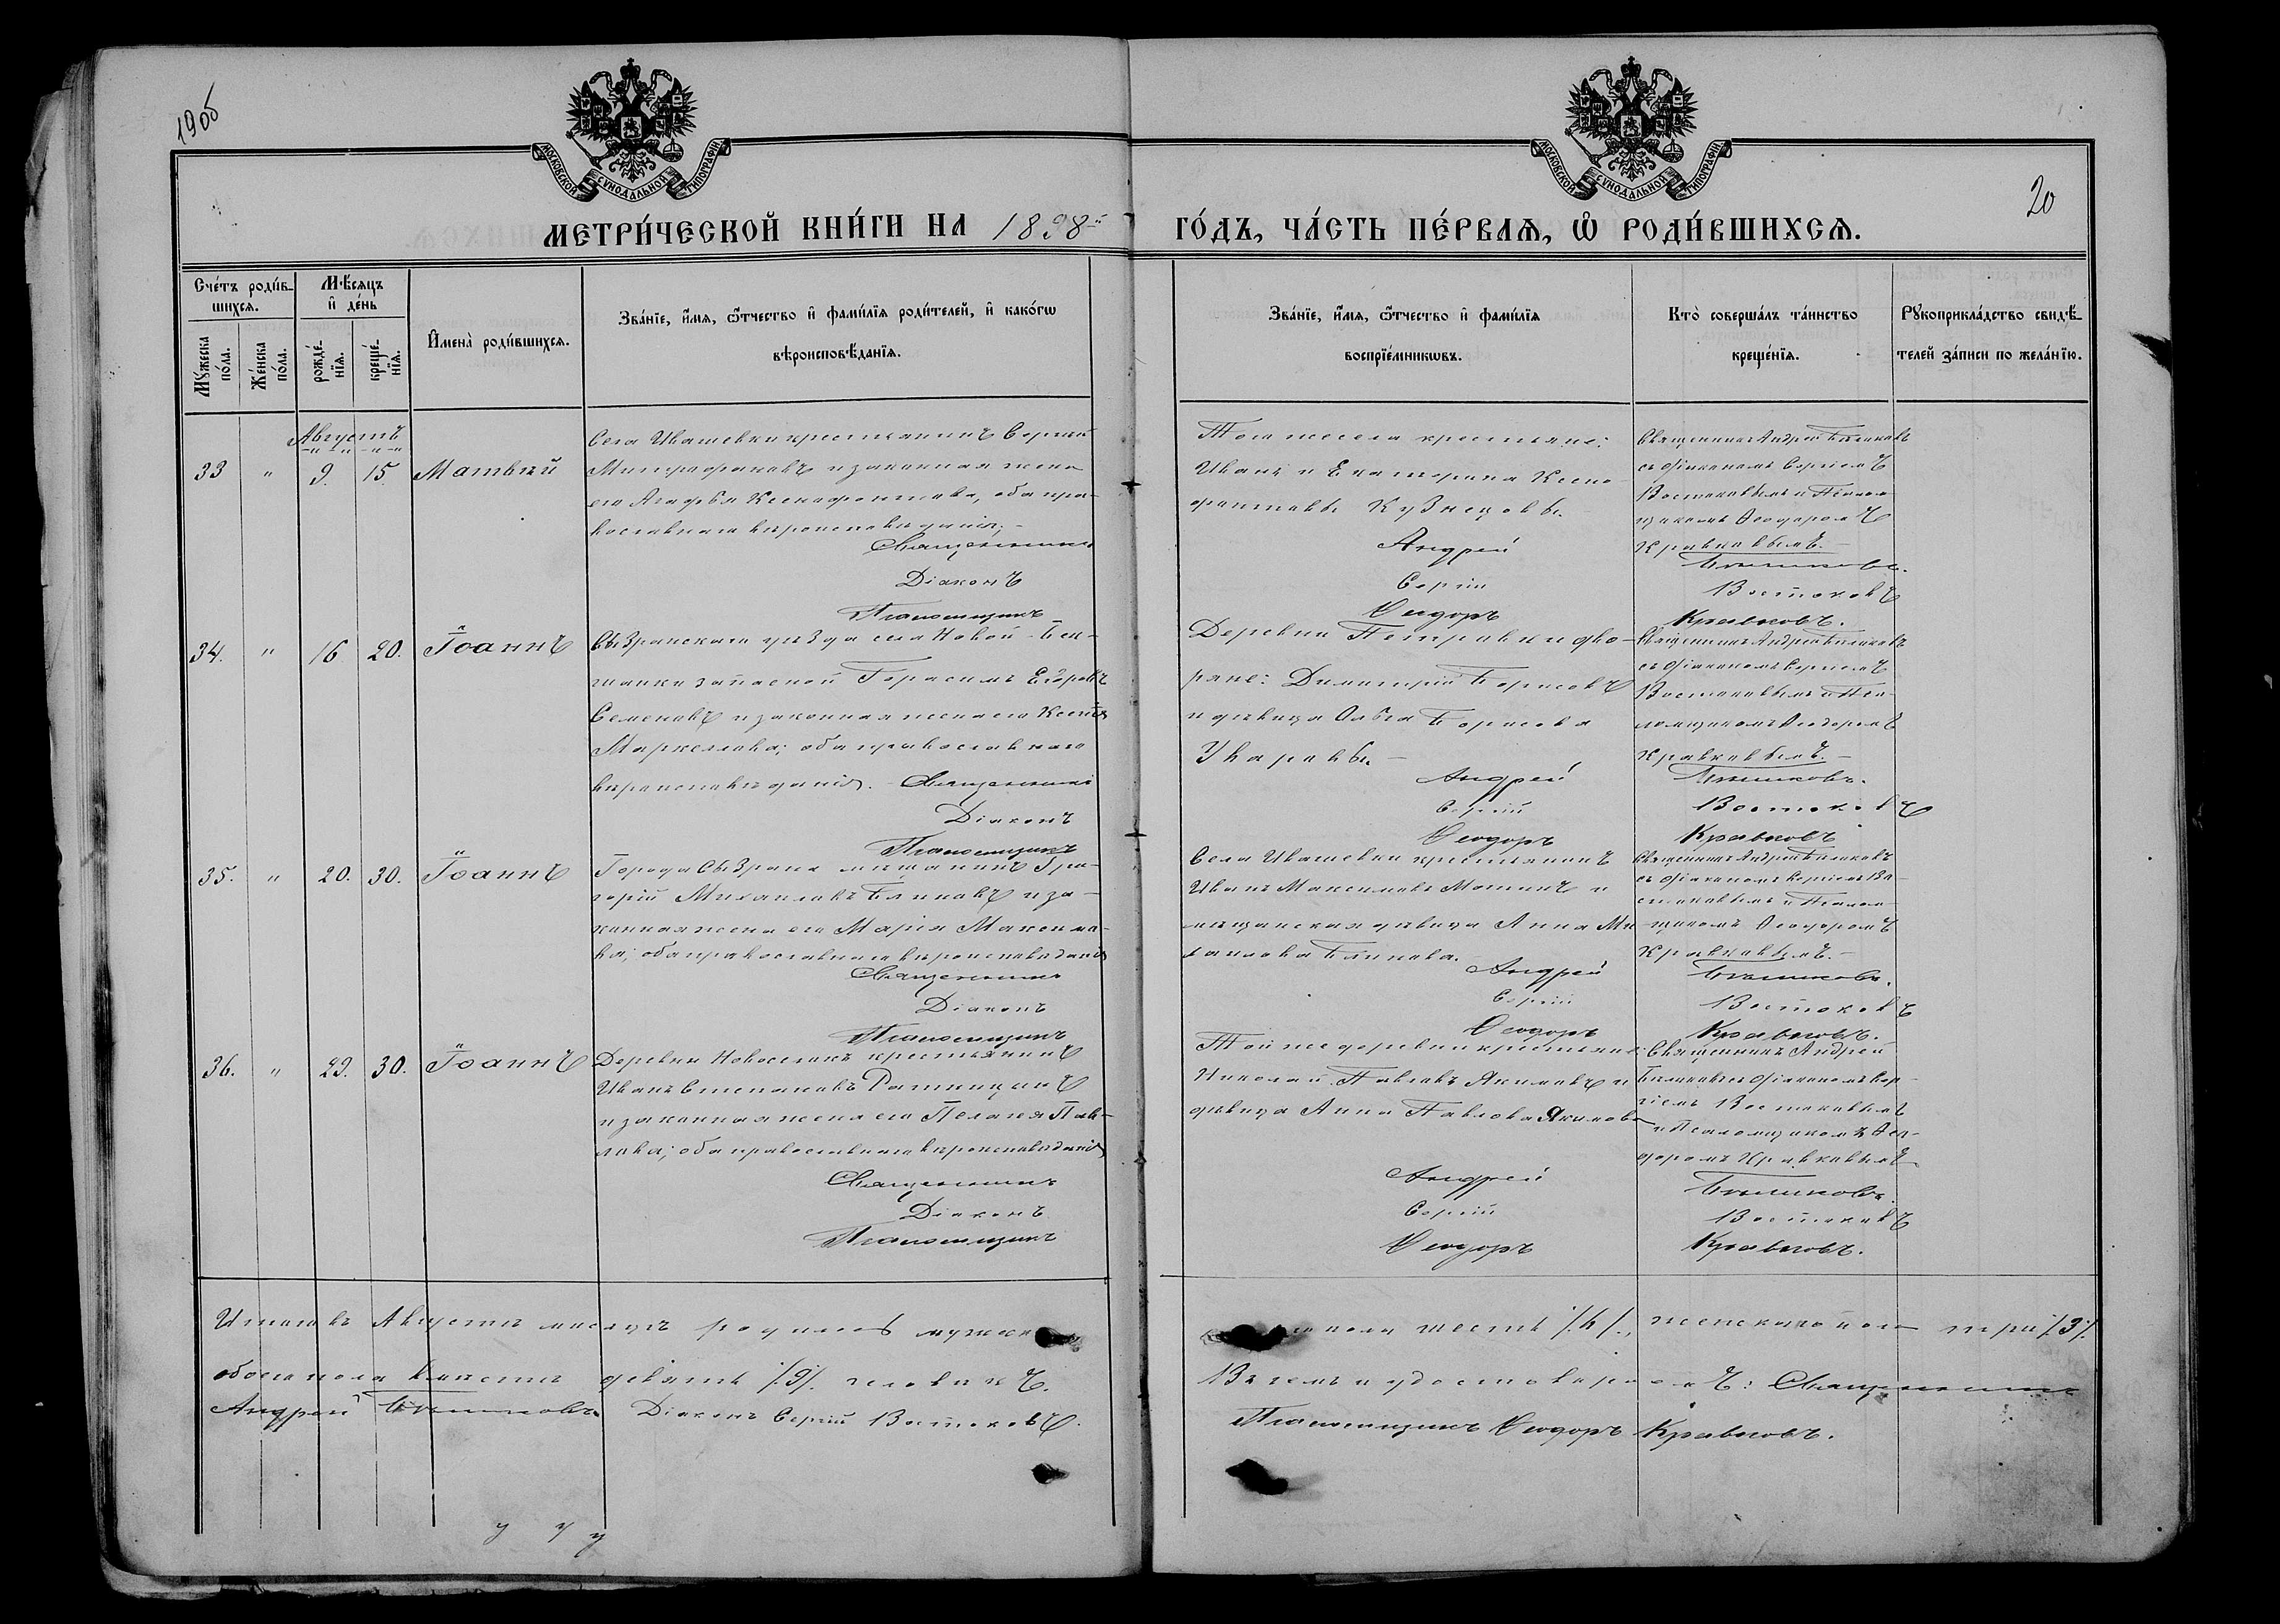 19об
20
МОСКОВСКОЙ СѴНОДАЛЬНОЙ ТИПОГРАФІИ
МОСКОВСКОЙ СѴНОДАЛЬНОЙ ТИПОГРАФІИ
МЕТРИ́ЧЕСКОЙ КНИ́ГИ НА 1898й
ГО́ДЪ, ЧА́СТЬ ПЕ́РВАЯ, Ѡ РОДИ́ВШИХСЯ.
Сче́тъ роди́в-
шихся.
Мѣ́сяцъ
и҆ де́нь
Мꙋ́жеска по́ла.
Же́нска по́ла.
рожде́-
нїя.
креще́-
нїя.
И҆мена̀ роди́вшихся.
Зва́нїе, и҆́мя, ѻ҆́тчество и҆ фами́лїя роди́телей, и҆ како́гѡ
вѣроисповѣ́данїя.
Зва́нїе, и҆́мя, ѻ҆́тчество и҆ фами́лїя
воспрїе́мникѡвъ.
Кто̀ соверша́лъ та́инство
креще́нїя.
Рꙋкоприкла́дство свидѣ́-
телей за́писи по жела́нїю.
Августъ
33 " 9. 15. Матвѣй
Села Ивашевки крестьянинъ Сергій
Митрофановъ и законная жена
его Агафья Ксенофонтова, оба пра-
вославнаго вѣроисповѣданія; -
Священникъ
Діаконъ
Псаломщикъ
Того же села крестьяне:
Иванъ и Екатерина Ксено-
фонтовы Кузнецовы.
Андрей
Сергій
Ѳеодоръ
Священникъ Андрей Бѣликовъ
съ діакономъ Сергіемъ
Востоковымъ и Псалом-
щикомъ Ѳеодоромъ
Кравковымъ. -
Бѣликовъ.
Востоковъ
Кравковъ.
34. " 16 20. Іоаннъ
Сызранскаго уѣзда села Новой Бек-
шанки запасной Герасимъ Егоровъ
Семеновъ и законная жена его Ксенія
Маркеллова; оба православнаго
вѣроисповѣданія. - Священникъ
Діаконъ
Псаломщикъ
Деревни Петровки дво-
ряне: Димитрій Борисовъ
и дѣвица Ольга Борисова
Уваровы. -
Андрей
Сергій
Ѳеодоръ
Священникъ Андрей Бѣликовъ
съ діакономъ Сергіемъ
Востоковымъ и Пса-
ломщикомъ Ѳеодоромъ
Кравковымъ. -
Бѣликовъ.
Востоковъ
Кравковъ
35. " 20. 30. Іоаннъ
Города Сызрана мѣщанинъ Гри-
горій Михаиловъ Блиновъ и за-
конная жена его Марія Максимо-
ва; оба православнаго вѣроисповѣданія
Священникъ
Діаконъ
Псаломщикъ
Села Ивашевки крестьянинъ
Иванъ Максимовъ и
мѣщанская дѣвица Анна Ми-
хаилова Блинова.
Андрей
Сергій
Ѳеодоръ
Священникъ Андрей Бѣликовъ
съ діакономъ Сергіемъ Во-
стоковымъ и Псалом-
щикомъ Ѳеодоромъ
Кравковымъ. -
Бѣликовъ.
Востоковъ
Кравковъ.
36. " 29. 30. Іоаннъ
Деревни Новоселокъ крестьянинъ
Иванъ Степановъ
и законная жена его Пелагея Пав-
лова; оба православнаго вѣроисповѣданія
Священникъ
Діаконъ
Псаломщикъ
Той же деревни крестьяне:
Николай Павловъ Якимовъ и
дѣвица Анна Павлова Якимова
Андрей
Сергій
Ѳеодоръ
Священникъ Андрей
Бѣликовъ съ діакономъ Сер-
гіемъ Востоковымъ
и Псаломщикомъ Ѳео-
доромъ Кравковымъ
Бѣликовъ.
Востоковъ
Кравковъ.
Итого въ Августѣ мѣсяцѣ родилось мужескаго пола шесть /.6/., женскаго пола три /.3/.
обоего пола вмѣстѣ девять /.9/. человѣкъ. Въ чемъ и удостовѣряемъ: Священникъ
Андрей Бѣликовъ Діаконъ Сергій Востоковъ. Псаломщикъ Ѳеодоръ Кравковъ.